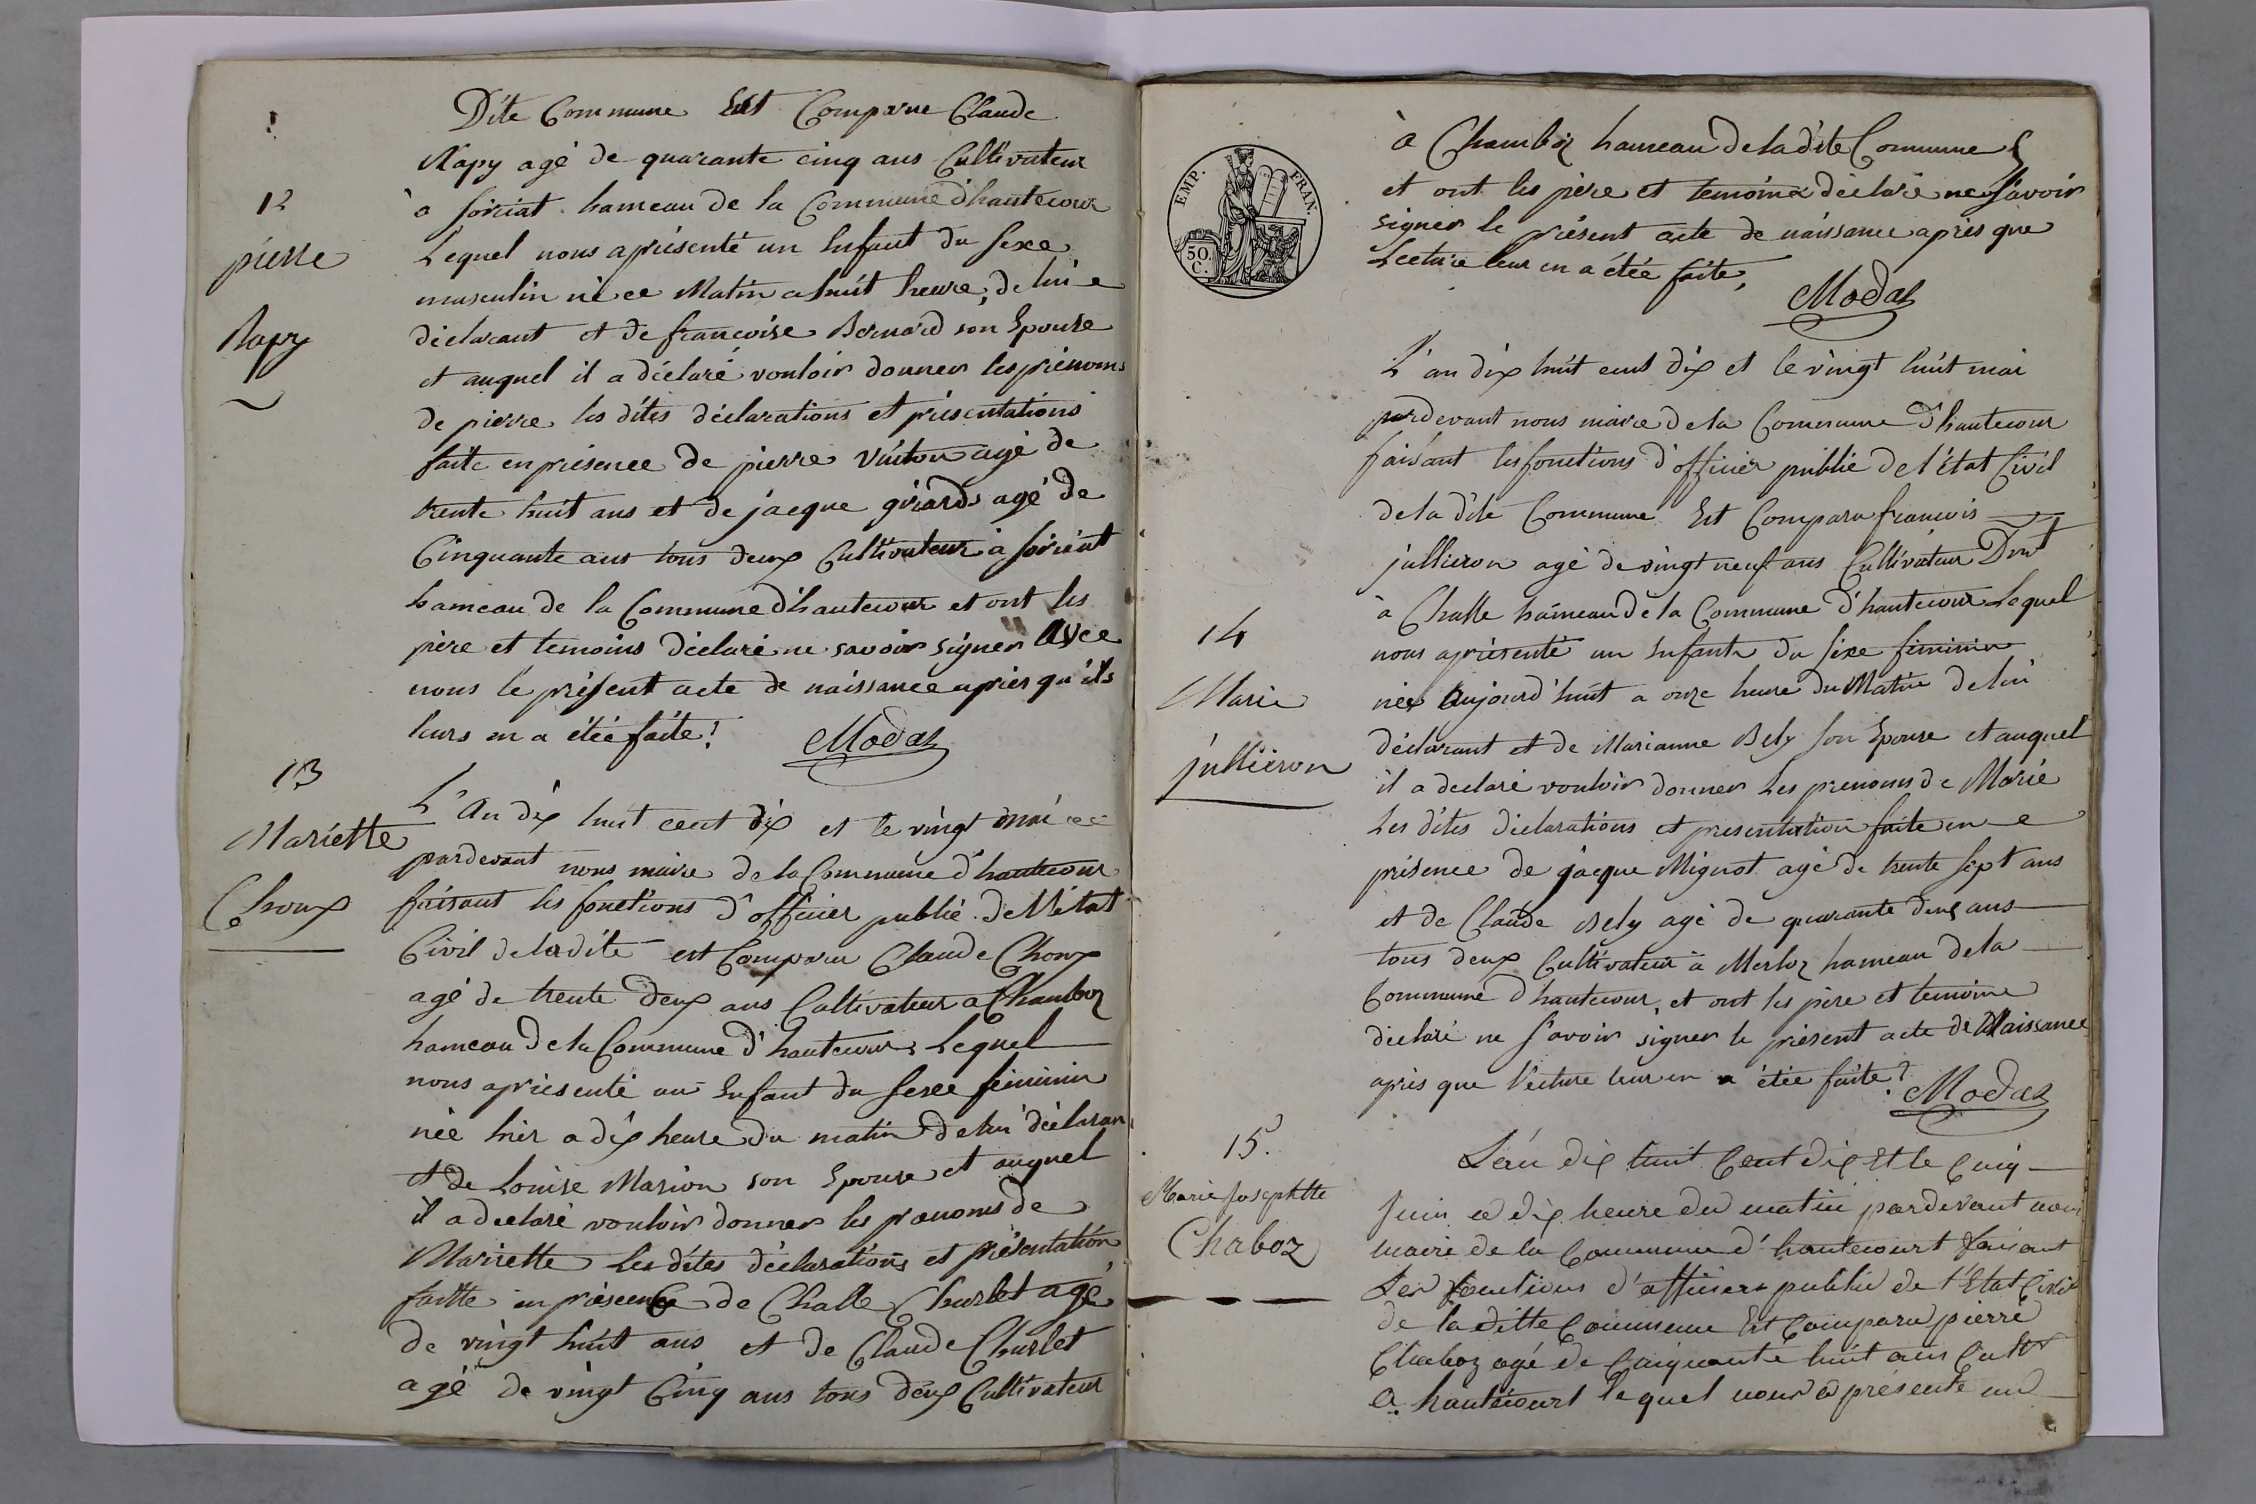 Dite Commune Est Comparue Claude
12
pierre
Rapy
Rapy agé de quarante cinq ans Cultivateur
à soriat hameau de la Commune d'hautecour
Lequel nous aprésenté un Enfant du sexe
masculin né ce Matin a huit heure, de lui
déclarant et de francoise Bernard son Epouse
et auquel il a déclaré vouloir donner les prénoms
de pierre les dites déclarations et présentations
faite en présence de pierre agé de
trente huit ans et de jacque girard agé de
Cinquante ans tous deux Cultivateur à soriat
hameau de la Commune d'hautecour et ont les
père et temoins déclaré ne savoir signer avec
nous le présent acte de naissance après qu'ils
leurs en a étée faite !
Modas
13
Mariette
Choux
L'An dix huit cent dix et le vingt mai
pardevant nous maire de la Commune d'hautecour
faisant les fonctions d'officier public de l'état
Civil de la dite est Comparu Claude Choux
agé de trente deux ans Cultivateur a Chamboz
hameau de la Commune d'hautecour Lequel
nous aprésenté un Enfant du sexe féminin
née hièr a dix heure du matin de lui déclarant
et de Louise Marion son Epouse et auquel
il a declaré vouloir donner les prenoms de
Mariette Les dites déclarations et présentation
faitte en présence de Challe Churlet agé
de vingt huit ans et de Claude Churlet
agé de vingt Cinq ans tous deux Cultivateur
EMP. FRAN.
50.
C.
à Chamboz hameau de la dite Commune
et ont les père et temoins déclaré ne savoir
signer le présent acte de naissance après que
Lecture leur en a étée faite,
Modas
14
Marie
jullieron
L'an dix huit cent dix et le vingt huit mai
pardevant nous maire de la Commune d'hautecour
faisant les fonctions d'officier public de l'état Civil
de la dite Commune Est Comparu francois
jullieron agé de vingt neuf ans Cultivateur
à Challe hameau de la Commune d'hautecour Lequel
nous aprésenté un Enfant du sexe féminin
née Aujourd'huit a onze heure du Matin de lui
déclarant et de Marianne Bely son Epouse et auquel
il a declaré vouloir donner Les prenoms de Marie
Les dites déclarations et presentation faite en
présence de jacque Mignot agé de trente sept ans
et de Claude Bely agé de quarante deux ans
tous deux Cultivateur à Merloz hameau de la
Commune d'hautecour, et ont les père et temoins
déclaré ne savoir signer le présent acte de Naissance
après que lecture leur en a étée faite
Modas
15.
Marie Josephtte
Chaboz
L'an dix huit Cent dix Et le Cinq
Juin a dix heure du matin pardevant nous
maire de la Commune d'hautecourt faisant
Les fonctions d'afficier public de l'Etat Civil
de la ditte Commune Est Comparu pierre
Chaboz agé de Cinquante huit ans Cultr
a hautecourt lequel nous a présenté un